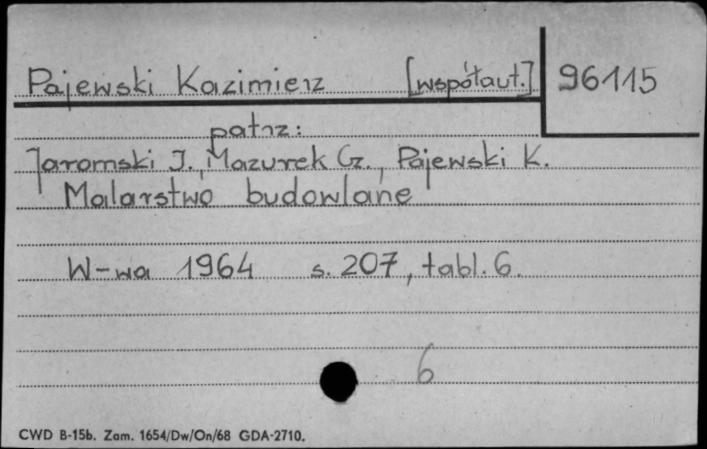 Pajewski Kazimierz [współaut.] 96115
patrz:
Jaromski J., Mazurek Cz., Pajewski K.
Malarstwo budowlane
W-wa 1964 s. 207, tabl. 6.
6
CWD B-15b. Zam. 1654/Dw/On/68 GDA-2710.